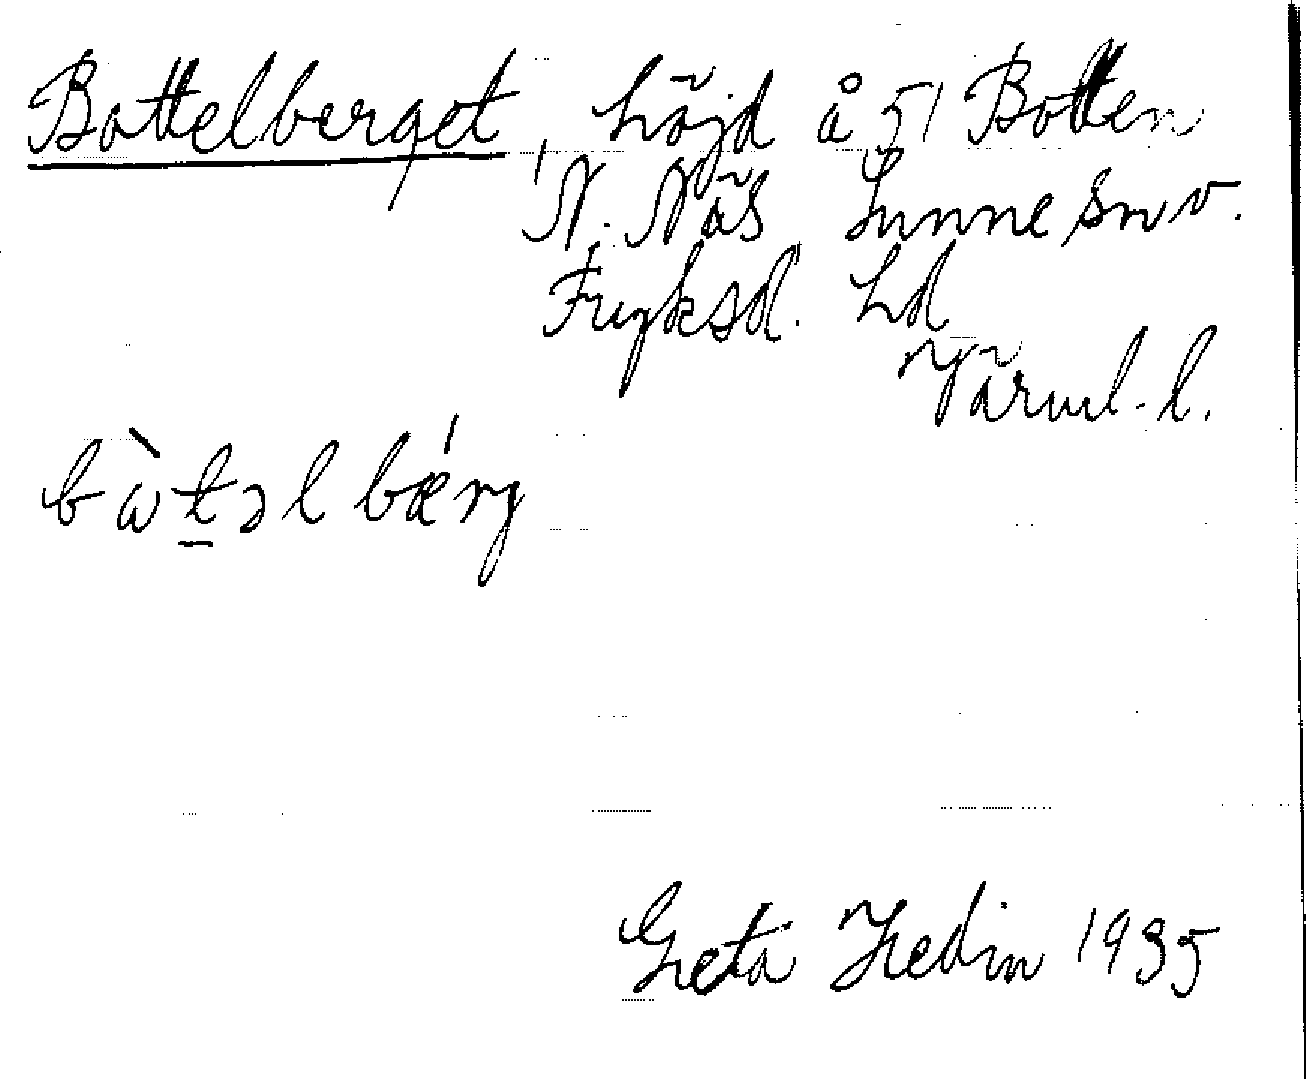 Bottelberget, höjd å 51 Botten
N. Näs Sunne sn v.
Fryksd. hd
Värml. l.
bὼt̠əl bǽrg
Greta Hedin 1935